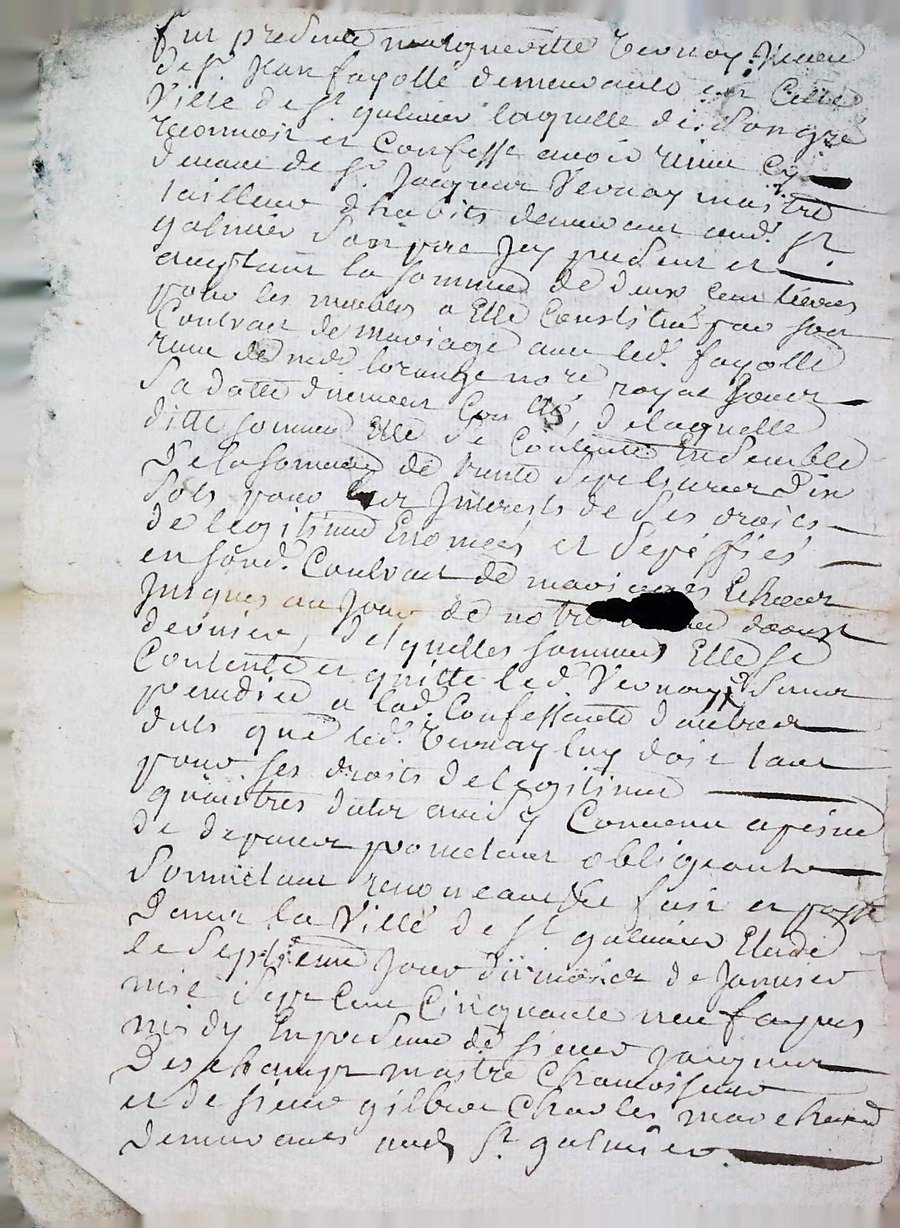 fut presente margueritte Vernay veuve
de Sr. Jean fayolle demeurante en Cette
Ville de St galmier laquelle de Son gré
reconnoit et Confesse avoir reçeu Cy
devant de Sr. Jacques Vernay maitre
tailleur d'habits demeurant aud. St.
galmier Son pere Icy present et
acceptant la Somme de deux Cent livres
pour les meubles a Elle Constitué par Son
Contrat de mariage avec led. fayolle
reçeu de me. lorange nore royal Sous
Sa datte duement Conllé, de laquelle
ditte Somme Elle Se Contente Ensemble
De la Somme de trente Sept livres dix
Sols pour les Interests de Ses droits
de legitime Enoncés et Speciffiés
en Sond. Contrat de mariage Echeus
Jusques au Jour de notre daoust
dernier, desquelles Sommes Elle Se
Contente et quitte led. Vernay Sans
prejudice a lad. Confessante d'autres
duts que led. Vernay luy doit tant
pour Ses droits de legitime
qu'autres dutes ainsi Convenu a peine
de depens promettant obligeant
Soumettant renonceant &c fait et passé
Dans la Ville de St galmier Etude
le Septieme Jour du mois de Janvier
mil Sept Cent Cinquante neuf apres
midy En presence de Sieur Jacques
Deschamps maitre Chamoiseur
et de Sieur gilbert Charles marchand
demeurants aud. St. galmier.